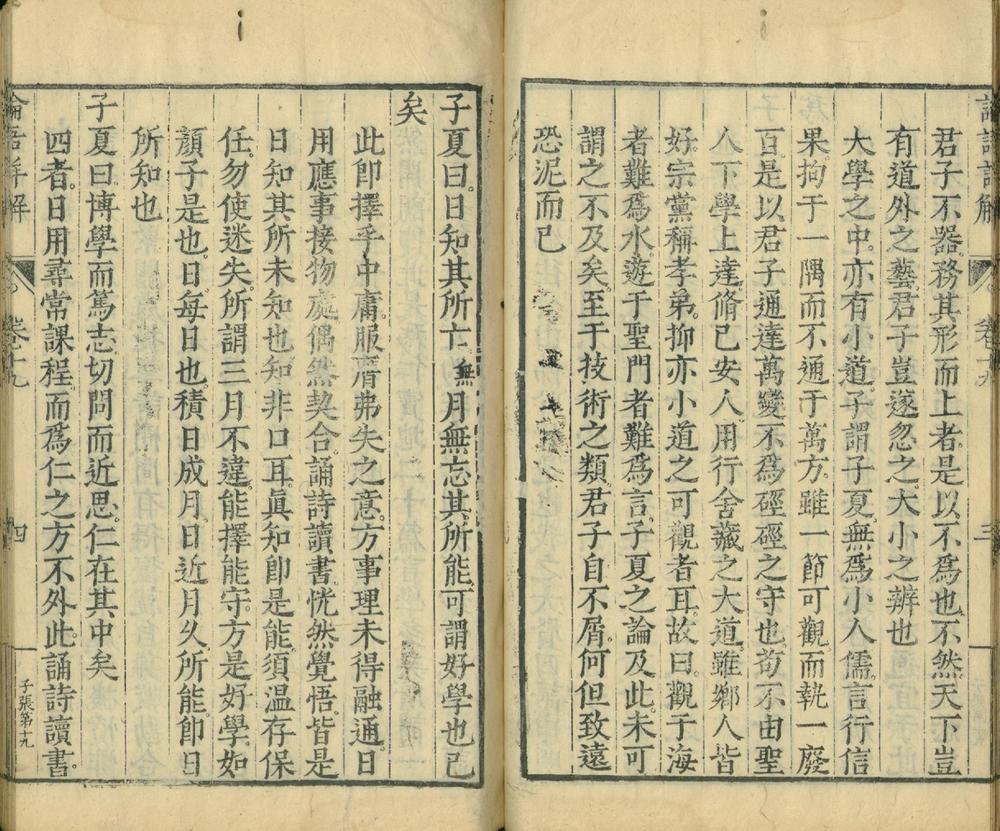 君子不器。務其形而上者。是以不爲也。不然。天下豈
有道外之藝。君子豈遂忽之。大小之辨也
大學之中。亦有小道。子謂子夏。無爲小人儒。言行信
果。拘于一隅。而不通于萬方。雖一節可觀。而執一廢
百。是以君子通達萬變。不爲硜硜之守也。苟不由聖
人下學上達。脩己安人。用行舍藏之大道。雖鄉人皆
好。宗黨稱孝弟。抑亦小道之可觀者耳。故曰。觀于海
者難爲水。遊于聖門者難爲言。子夏之論及此。未可
謂之不及矣。至于技術之類。君子自不屑。何但致遠
恐泥而已
三
子夏曰。日知其所亡。無月無忘其所能。可謂好學也已
矣
此卽擇乎中庸。服膺弗失之意。方事理未得融通。日
用應事接物處。偶然契合。誦詩讀書。恍然覺悟。皆是
日知其所未知也。知非口耳。眞知卽是能。須溫存保
任。勿使迷失。所謂三月不違。能擇能守。方是好學。如
顏子是也。日。每日也。積日成月。日近月久。所能卽日
所知也
子夏曰。博學而篤志。切問而近思。仁在其中矣
四者。日用尋常課程。而爲仁之方不外此。誦詩讀書。
卷十九
四
子張第十九